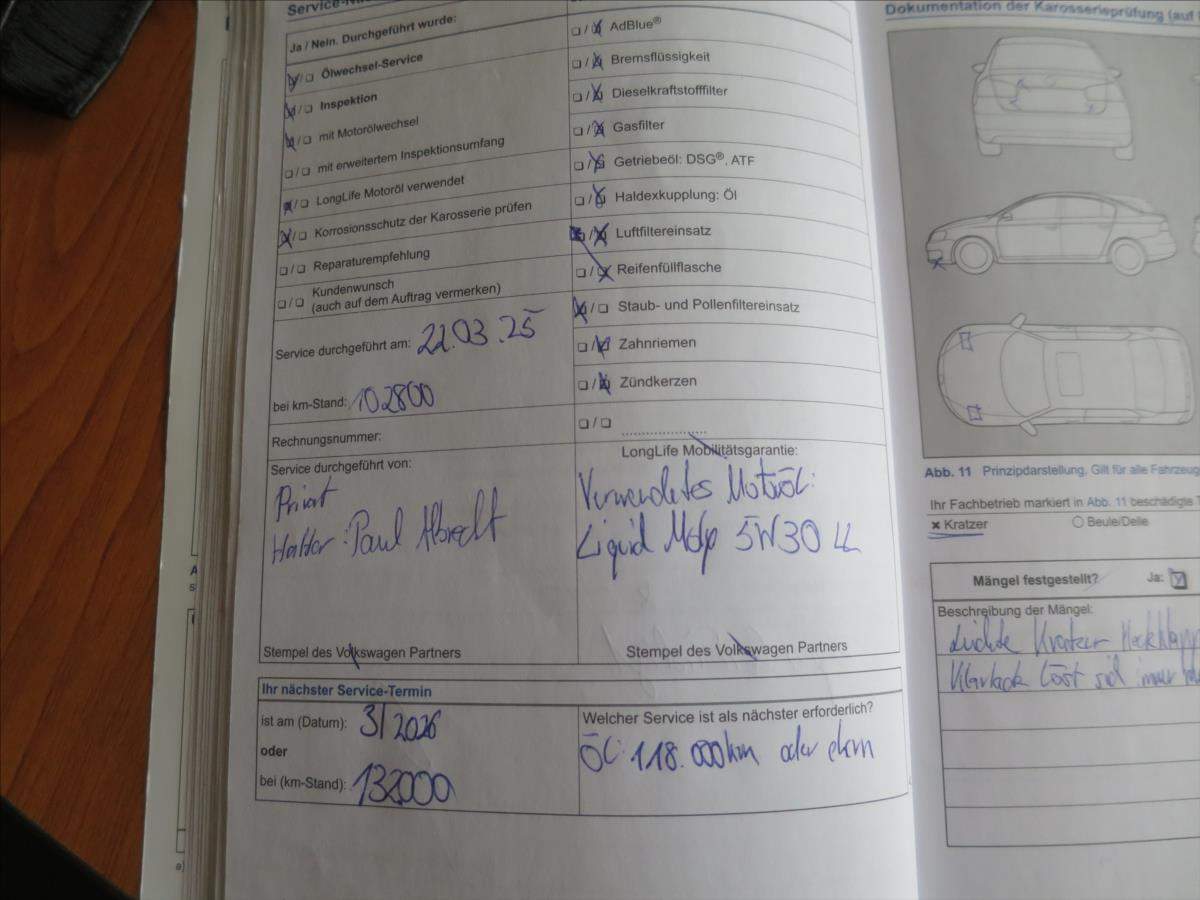 Ja / Nein. Durchgeführt wurde:
Ölwechsel-Service
Inspektion
mit Motorölwechsel
mit erweitertem Inspektionsumfang
LongLife Motoröl verwendet
Korrosionsschutz der Karosserie prüfen
Reparaturempfehlung
Kundenwunsch
(auch auf dem Auftrag vermerken)
Service durchgeführt am: 22.03.25
bei km-Stand: 102800
Rechnungsnummer:
Service durchgeführt von:
Privat
Halter: Paul Albrecht
Stempel des Volkswagen Partners
AdBlue®
Bremsflüssigkeit
Dieselkraftstofffilter
Gasfilter
Getriebeöl: DSG®, ATF
Haldexkupplung: Öl
Luftfiltereinsatz
Reifenfüllflasche
Staub- und Pollenfiltereinsatz
Zahnriemen
Zündkerzen
LongLife Mobilitätsgarantie:
Verwendetes Motoröl:
Liquid 5W30 LL
Stempel des Volkswagen Partners
Ihr nächster Service-Termin
ist am (Datum): 3/2026
oder
bei (km-Stand): 132000
Welcher Service ist als nächster erforderlich?
Öl: 118.000km oder
Dokumentation der Karosserieprüfung (auf
Abb. 11 Prinzipdarstellung. Gilt für alle Fahrzeug
Ihr Fachbetrieb markiert in Abb. 11 beschädigte
Kratzer
Beule/Delle
Mängel festgestellt? Ja:
Beschreibung der Mängel:
Leichte Kratzer
Klarlack löst sich